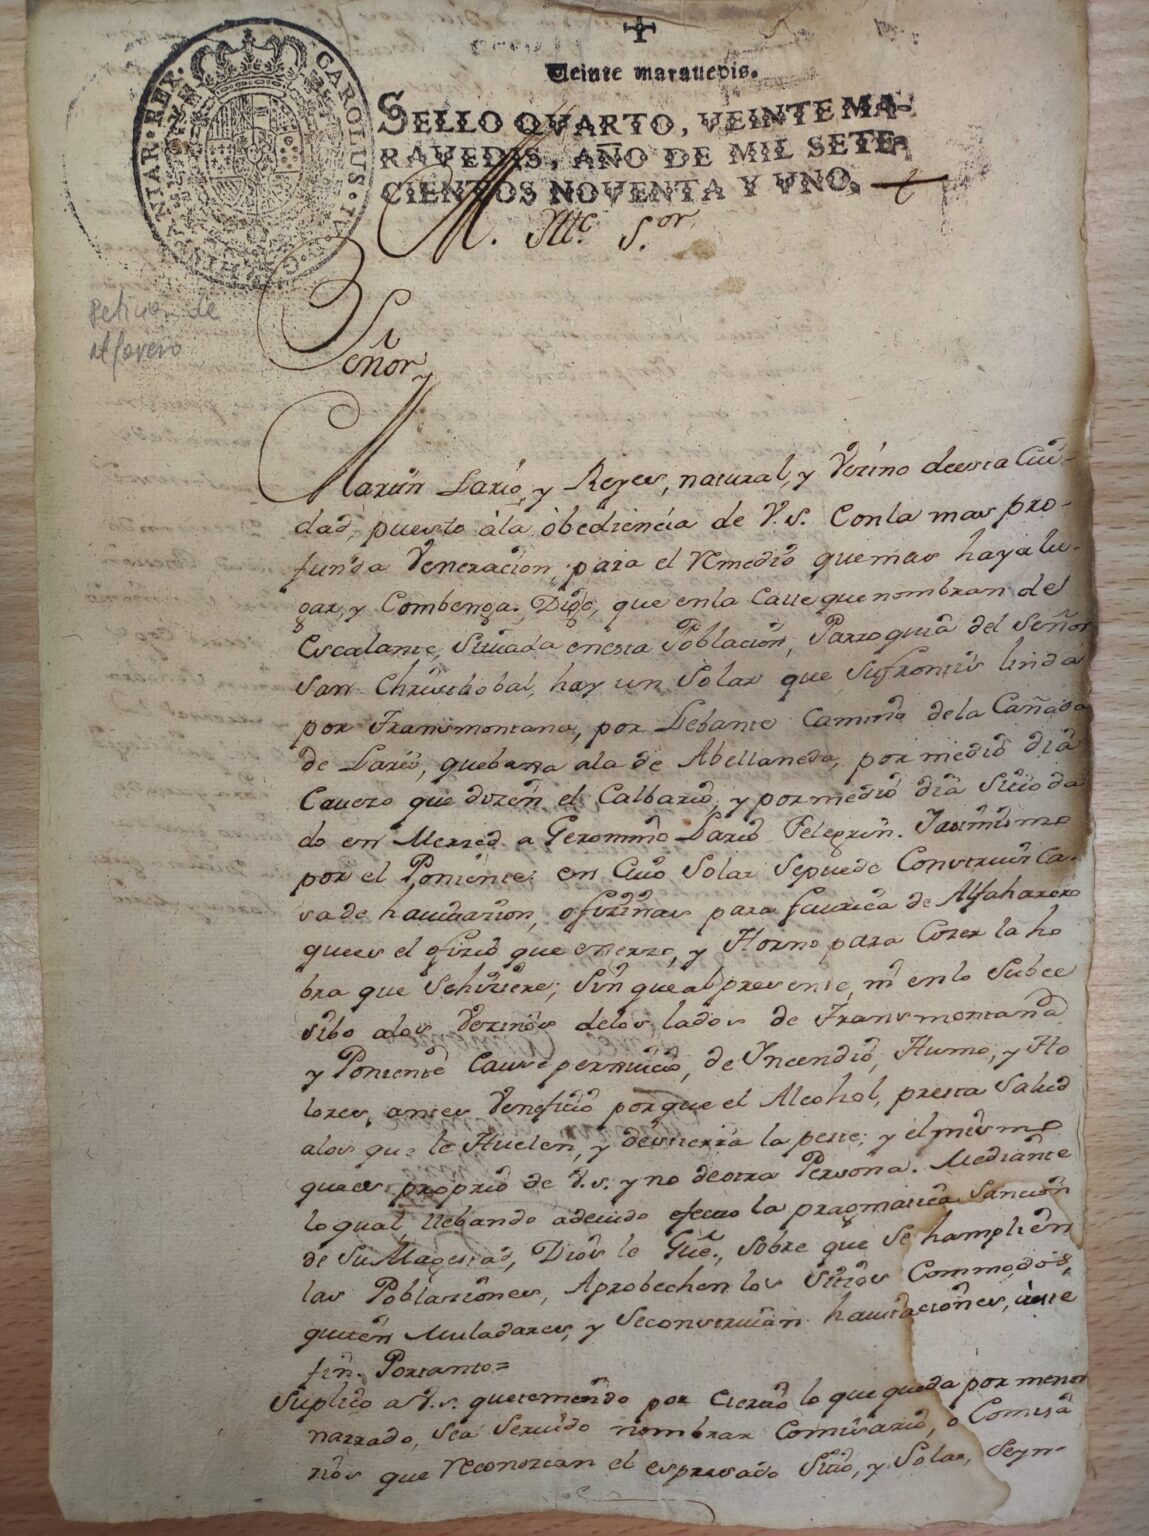 Veinte marauedis.
SELLO QVARTO, VEINTE MA-
RAVEDIS, AÑO DE MIL SETE-
CIENTOS NOVENTA Y VNO.
CAROLUS IV D.G. HISPANIAR. REX.
M. Ill.e S.or
Peticion de
alfarero
Señor
Martin Lario, y Reyes, natural, y Vezino deesta Ciu-
dad, puesto àla òbediencia de V.S. Conla mas pro-
funda Veneracion; para el remedio quemas haya lu-
gar, y Combenga. Digo, que enla Calle que nombran del
Escalante, Situada enesta Poblacion, Parroquia del Señor
San Christhobal, hay un Solar que Sufrontis linda
por Transmontana, por Lebante Camino dela Cañada
de Lario, quebaxa ala de Abellaneda, por medio dia
Cauezo que dizen el Calbario, y pormedio dia Sitio da
do en Merzed a Geronimo Lario Pelegrin. Yasimismo
por el Poniente: en Cuio Solar Sepuede Construir Ca-
sa de hauitazion, ofizinas para faurica de Alfaharero
quees el ofizio que exerzo, y Horno para Cozer la ho
bra que Sehiziere; Sin que al presente, ni en lo Subce
sibo alos Vezinos delos lados de Transmontana
y Poniente Cause perjuicio, de Yncendio, Humo, y Ho
lores, antes Veneficio porque el Alcohol, presta Salud
alos que le Huelen, y destierra la peste; y el mismo
quees proprio de V.S. y no deotra Persona. Mediante
lo qual, llebando adeuido efecto la pragmatica Sancion
de Su Magestad, Dios le Güe., Sobre que Se hamplien
las Poblaziones, Aprobechen los Sitios Commodos,
quiten Muladares, y Seconstruian hauitaciones, àeste
fin. Portanto=
Suplico a V.S. queteniendo por Cierto lo que queda por menor
narrado, Sea Seruido nombrar Comisario, o Comisa
rios que reconozcan el espresado Sitio, y Solar, Seyn-